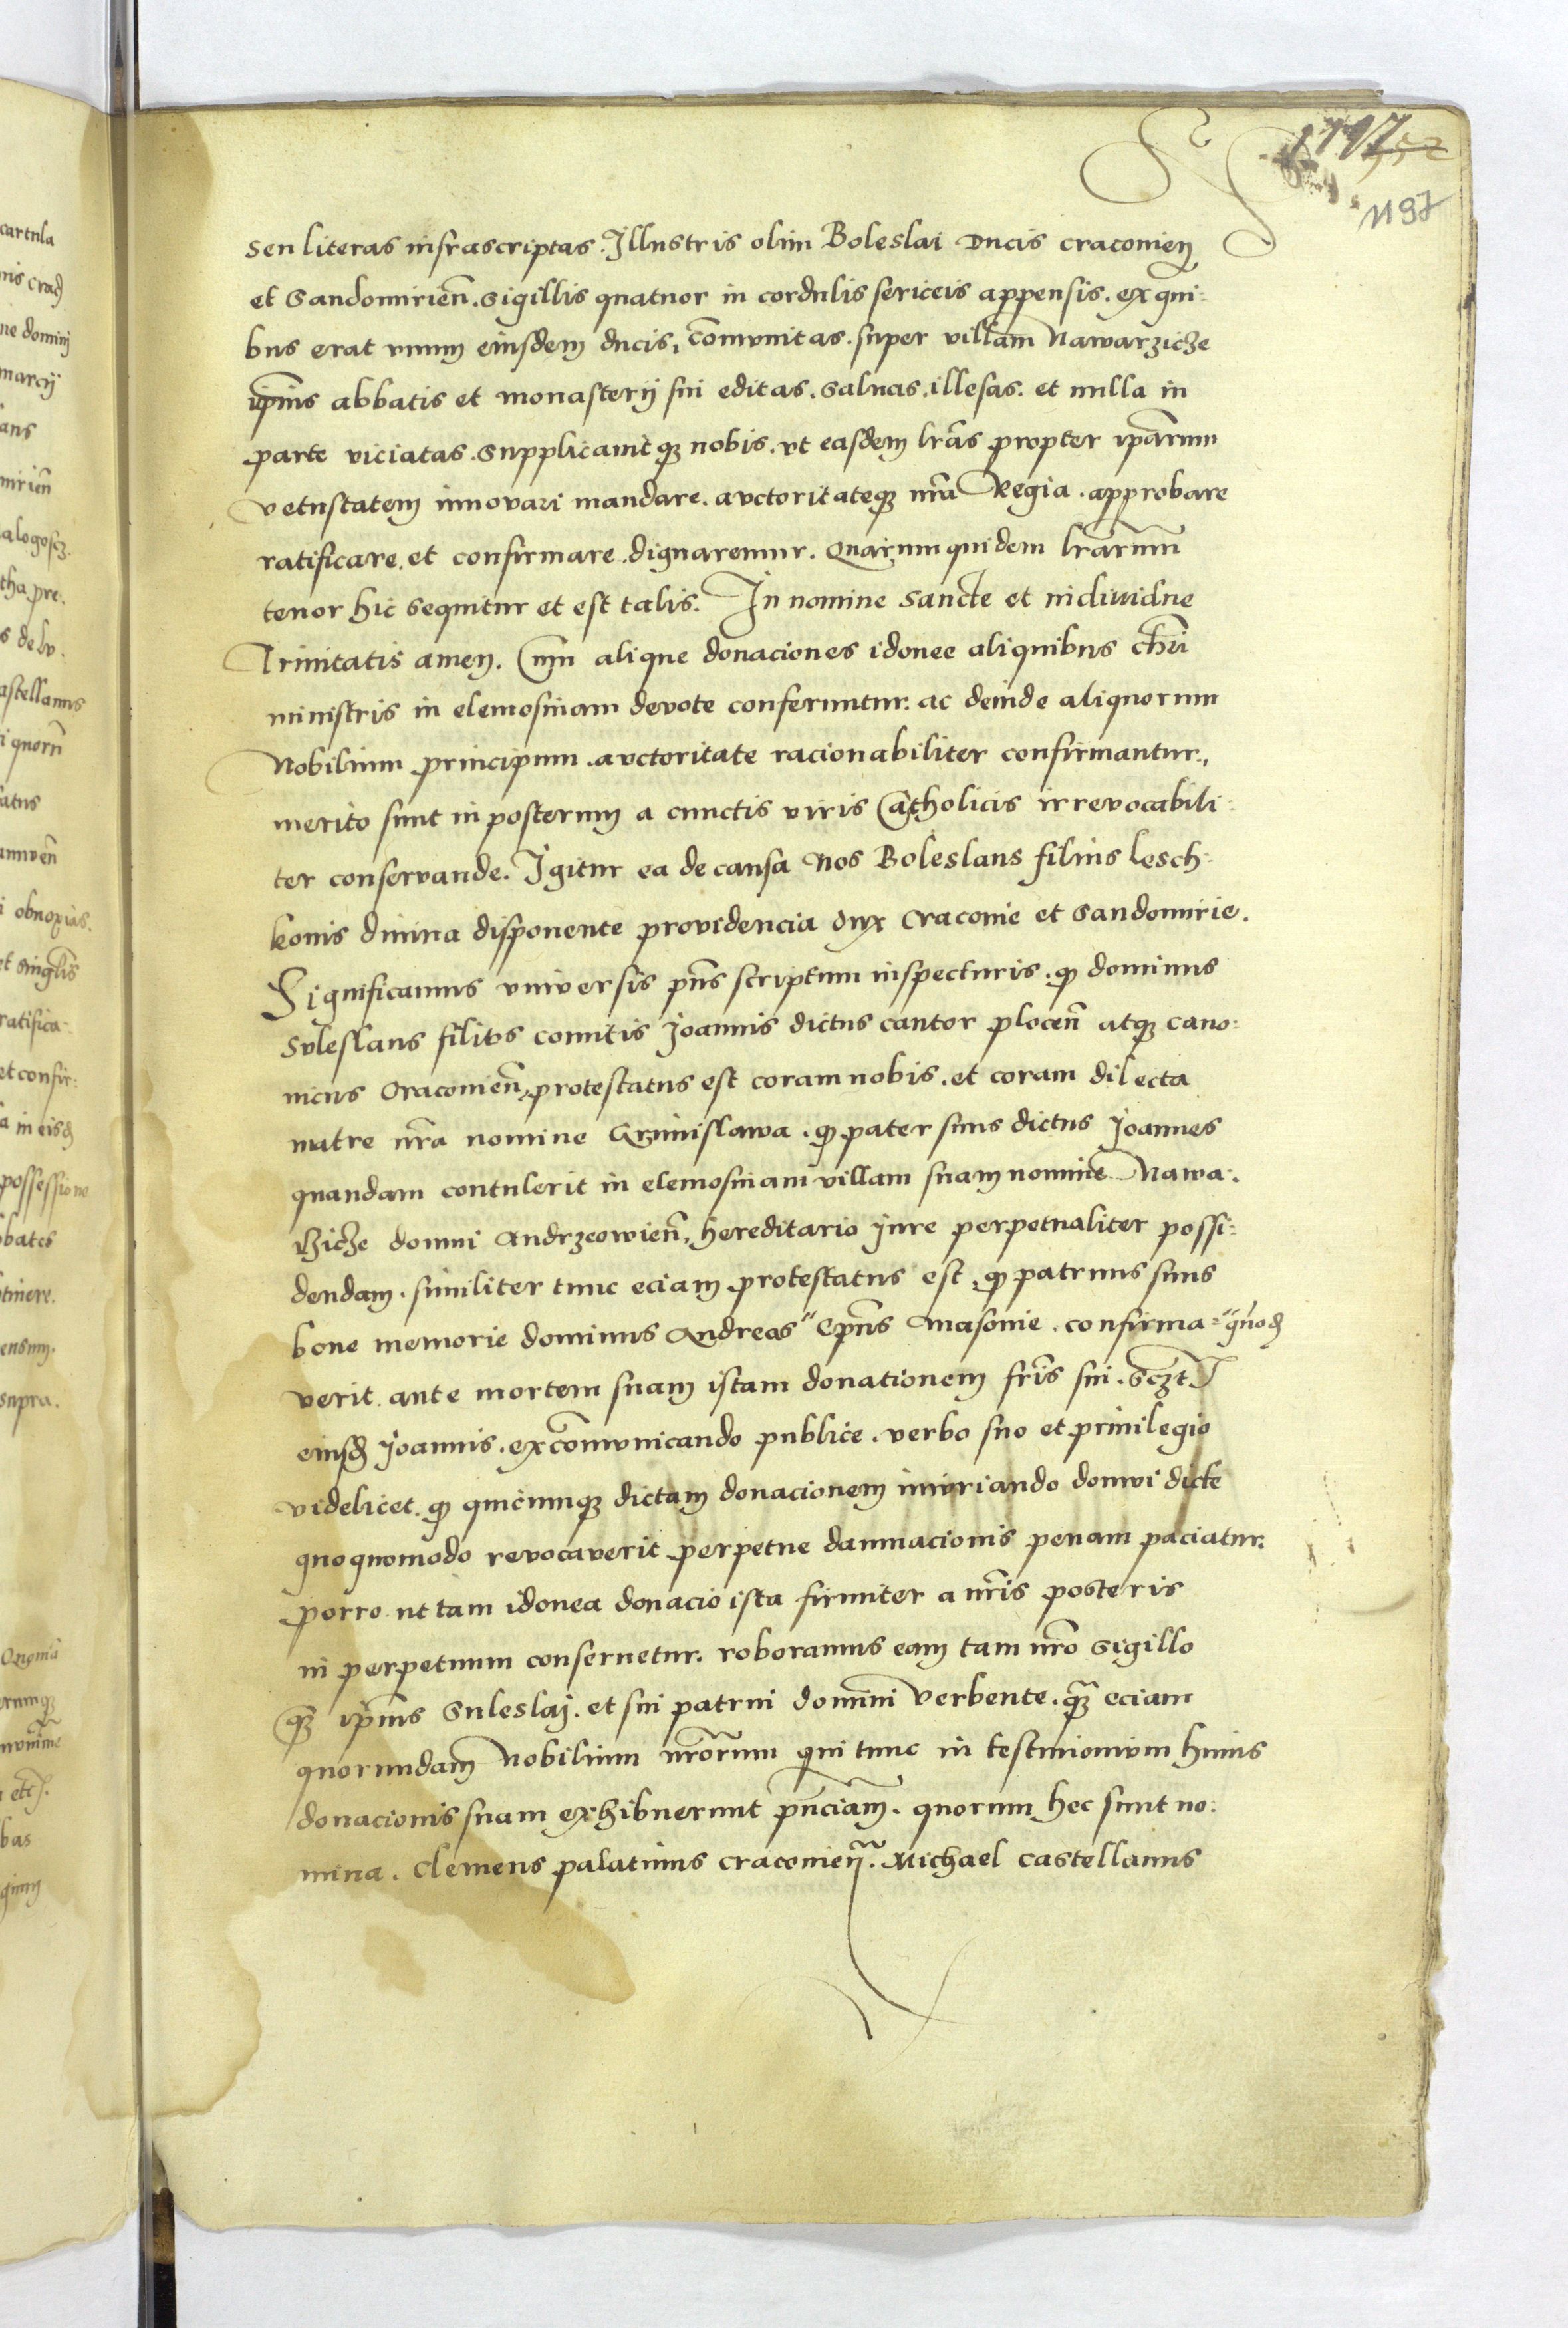 1197
1197
seu literas infrascriptas. Illustris olim Boleslai Ducis cracovien̄
et Sandomirien̄. sigillis quatuor in cordulis sericeis appensis. ex qui:
bus erat unum eiusdem ducis, com̄unitas. super villam Nawarzicze
ip̄ius abbatis et monasterij sui editas. salvas. illesas. et nulla in
parte viciatas. Supplicavitqȝ nobis. ut easdem lr̄as propter ip̄arum
vetustatem innovari mandare. auctoritateqȝ nr̄a Regia. approbare
ratificare. et confirmare dignaremur. Quarum quidem lr̄arum
tenor hic sequitur et est talis. In nomine sancte et individue
Trinitatis amen. Cum alique donaciones idonee aliquibus chr̄i
ministris in elemosinam devote conferuntur. ac deinde aliquorum
Nobilium principum. auctoritate racionabiliter confirmantur.,
merito sunt in posterum a cunctis viris Catholicis irrevocabili:
ter conservande. Igitur ea de causa Nos Boleslaus filius lesch:
konis divina disponente providencia dux Cracovie et Sandomirie.
Significamus universis pn̄s scriptum inspecturis. qȝ dominus
Suleslaus filius comitis Joannis dictus cantor plocen̄ atqȝ cano:
nicus Cracovien̄, protestatus est coram nobis. et coram dilecta
matre nr̄a nomine Grzimislawa. qȝ pater suus dictus Joannes
quandam contulerit in elemosinam villam suam nomine Nawa:
rzicze domui Andrzeowien̄, hereditario jure perpetualiter possi:
dendam. similiter tunc eciam protestatus est. qȝ patruus suus
bone memorie dominus Andreas" Ep̄us Masovie. confirma= "quond̄
verit. ante mortem suam istam donationem fr̄is sui. scȝt.
eiusd̄ Joannis. excom̄unicando publice. verbo suo et privilegio
videlicet. qȝ quicunqȝ dictam donacionem iniuriando domui dicte
quoquomodo revocaverit perpetue damnacionis penam paciatur.
porro ut tam idonea donacio ista firmiter a nr̄is posteris
in perpetuum conservetur. roboramus eam tam nr̄o sigillo
qȝ ip̄ius Suleslaj. et sui patrui domini Verbente. qȝ eciam
quorundam Nobilium nr̄orum qui tunc in testimonium huius
donacionis suam exhibuerunt pn̄ciam. quorum hec sunt no:
mina. Clemens palatinus cracovien̄. Michael castellanus